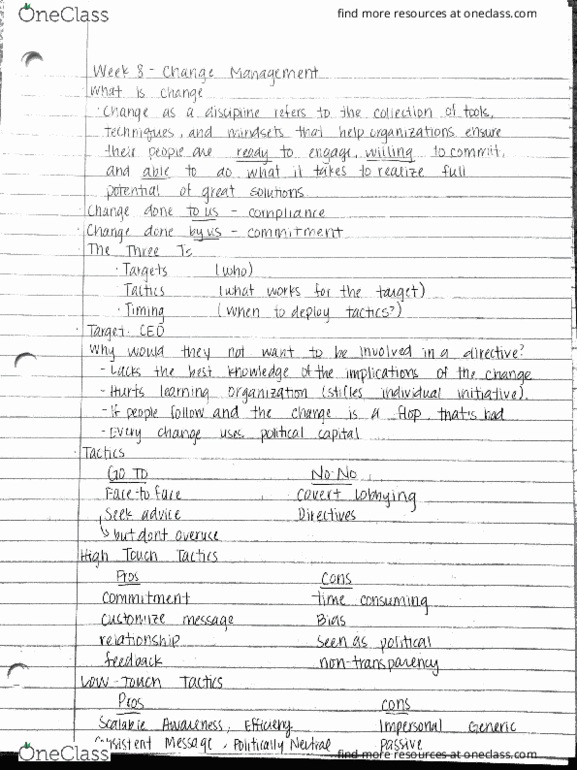 OneClass find more resources at oneclass.com
Week 8 - Change Management
What is change
· Change as a discipline refers to the collection of tools,
techniques, and mindsets that help organizations ensure
their people are ready to engage, willing to commit,
and able to do what it takes to realize full
potential of great solutions
Change done to us - compliance
· Change done by us - commitment
The Three Ts
· Targets (who)
Tactics (what works for the target)
· Timing (when to deploy tactics?)
· Target: CEO
Why would they not want to be involved in a directive?
- Lacks the best knowledge of the implications of the change
- Hurts learning organization (stifles individual initiative).
- If people follow and the change is a flop, that's bad
- Every change uses political capital
· Tactics
GO TO No-No
Face-to face Covert lobbying
Seek advice Directives
↳ but dont overuse
High Touch Tactics
Pros Cons
Commitment Time consuming
Customize message Bias
relationship Seen as political
feedback non-transparency
Low-Touch Tactics
Pros cons
Scalable Awareness, Efficiency Impersonal Generic
Consistent Message, Politically Neutral Passive
OneClass find more resources at oneclass.com